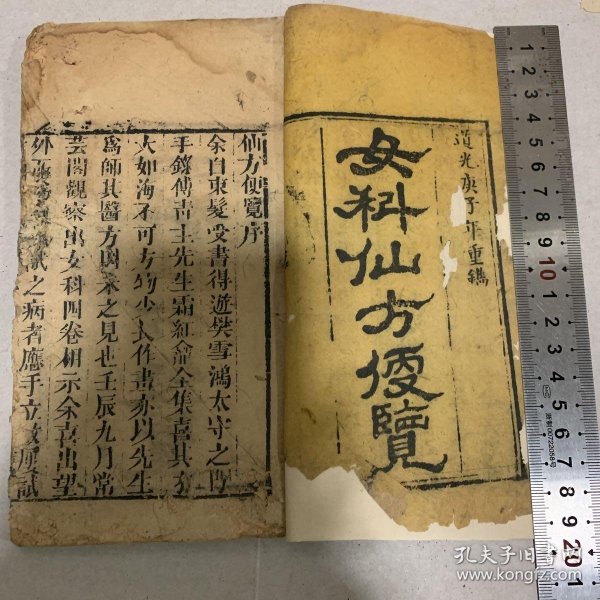 道光庚子年重鐫
女科仙方便覽
仙方便覽序
余自束髮受書得遊樊雪鴻太守之門
手錄傅青主先生霜紅龕全集喜其文
大如海不可方物少長作書亦以先生
爲師其醫方固未之見也壬辰九月常
芸閣觀察出女科四卷相示余喜出望
外 試之病者應手立效屢試
1 2 3 4 5 6 7 8 9 10 1 2 3 4 5 6 7 8 9 20 1
孔夫子旧书网
www.kongfz.com